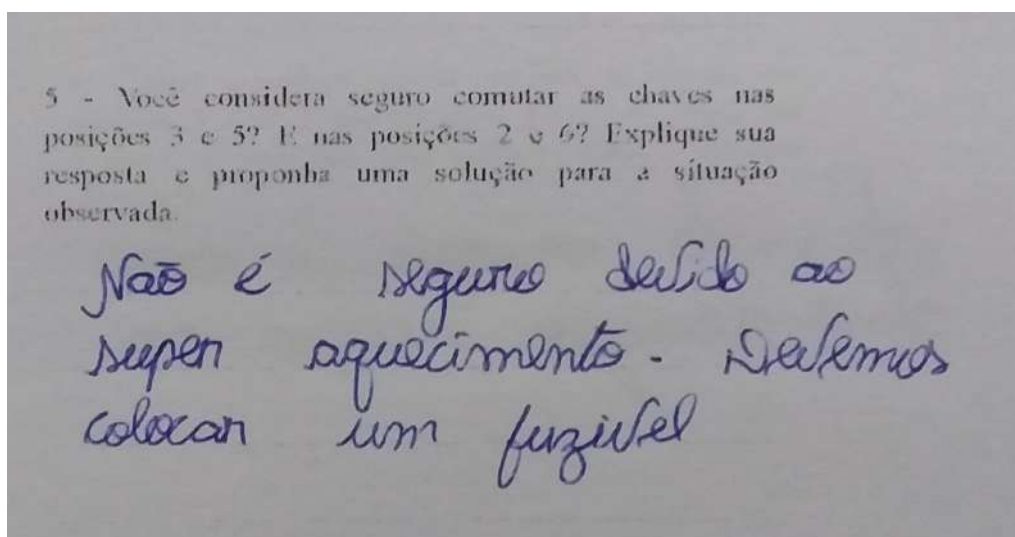 5 - Você considera seguro comutar as chaves nas
posições 3 e 5? E nas posições 2 e 6? Explique sua
resposta e proponha uma solução para a situação
observada.
Não é seguro devido ao
super aquecimento. Devemos
colocar um fuzivel